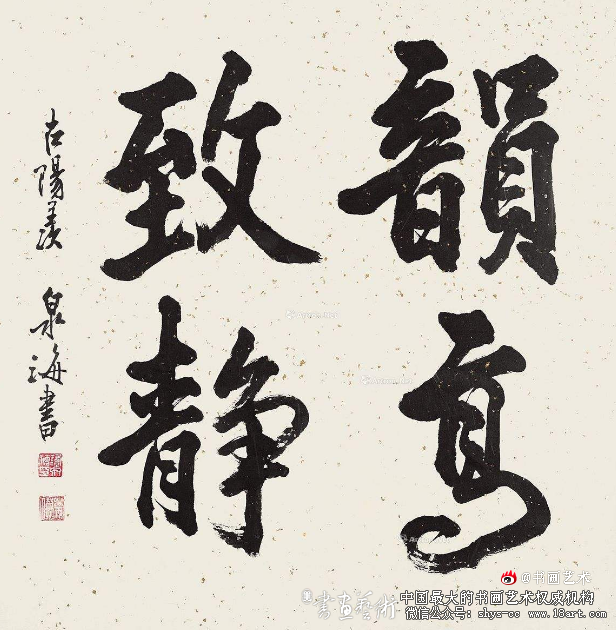 韻高
致静
古陽羨
泉海書
@书画艺术
書畫藝術
中国最大的书画艺术权威机构
微信公众号：shys-cc www.18art.com